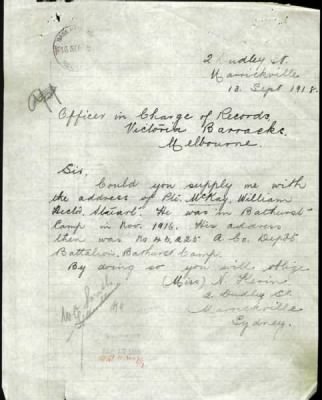 2 Dudley St.
Marrickville
13. Sept 1918.
Officer in Charge of Records,
Victoria Barracks,
Melbourne.
Sir.
Could you supply me with
the address of Pte. McKay, William
Stuart. He was in Bathurst
Camp in Nov. 1916. His address
then was No A Co. Depôt
Battalion, Bathurst Camp.
By doing so you will oblige
(Miss) N.
2 Dudley St.
Marrickville
Sydney.